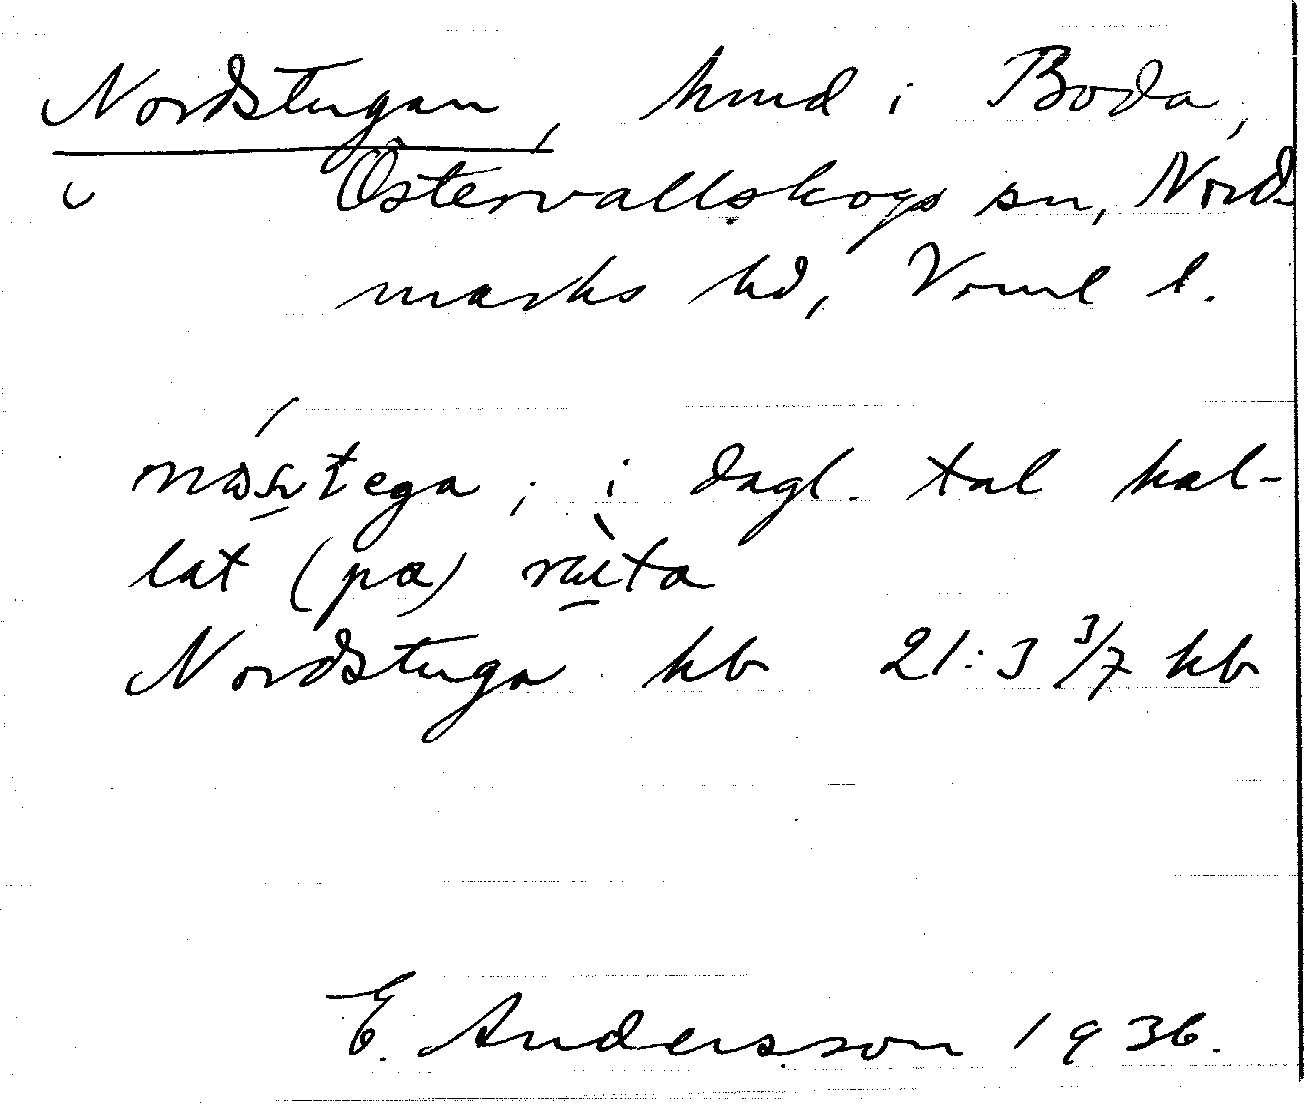 Nordstugan, hmd i Boda,
Östervallskogs sn, Nord-
marks hd, Vrml l.
tega; i dagl. tal kal-
lat (pa)
Nordstuga hb 21:3 3/7 hb
E. Andersson 1936.